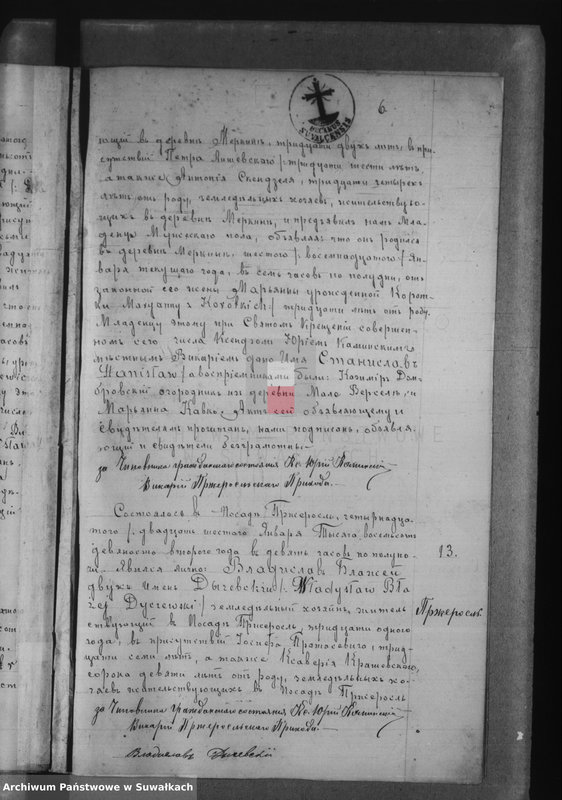 6
DECANUS
SUVALCENSIS
ющий въ деревнѣ Меркинѣ, тридцати двухъ лѣтъ, въ при
сутствіи Петра Лишевскаго / тридцати шести лѣтъ,
а также Антонія Скендзеля, тридцати четырехъ
лѣтъ отъ роду, земледѣльцевъ хозяевъ, жительствую
щихъ въ деревнѣ Меркинѣ, и предъявилъ намъ Мла
денца Мужескаго пола, объявляя что онъ родился
въ деревнѣ Меркинѣ, шестого / восемнадцатого / Ян
варя текущаго года, въ семь часовъ по полудни, отъ
законной его жены Марьянны урожденной Корот
ки / Maryanny z Korotkich / тридцати лѣтъ отъ роду.
Младенцу этому при Святомъ Крещеніи совершен
номъ сего числа Ксендзомъ Юріемъ Каминскимъ
мѣстнымъ Викаріемъ дано Имя Станиславъ
Stanisław / а воспріемниками были: Казиміръ Дом
бровскій огородникъ изъ деревни Мало Версель, и
Марьянна Актъ сей объявляющему и
свидѣтелямъ прочитанъ, нами подписанъ, объявля
ющій и свидѣтели безграмотны.
за Чиновника гражданскаго состоянія Кс. Юрій Каминскій
Викарій Пржеросльскаго Прихода.
13.
Пржеросль
Состоялось въ Посадѣ Пржеросль, четырнадца
того / двадцать шестого Января Тысяча восемьсотъ
девяносто второго года въ девять часовъ по полуно
чи. Явился лично: Владиславъ Блажей
двухъ именъ / Władysław Bła
żej Dyczewski / земледѣльный хозяинъ, житель
ствующій въ Посадѣ Пржеросль, тридцати одного
года, въ присутствіи Іосифа Протасевича, трид
цати семи лѣтъ, а также Ксаверія Крашевскаго,
сорока девяти лѣтъ отъ роду, земледѣльныхъ хо
зяевъ жительствующихъ въ Посадѣ Пржеросль
за Чиновника гражданскаго состоянія Кс. Юрій Каминскій
Викарій Пржеросльскаго Прихода.
Владиславъ
Archiwum Państwowe w Suwałkach